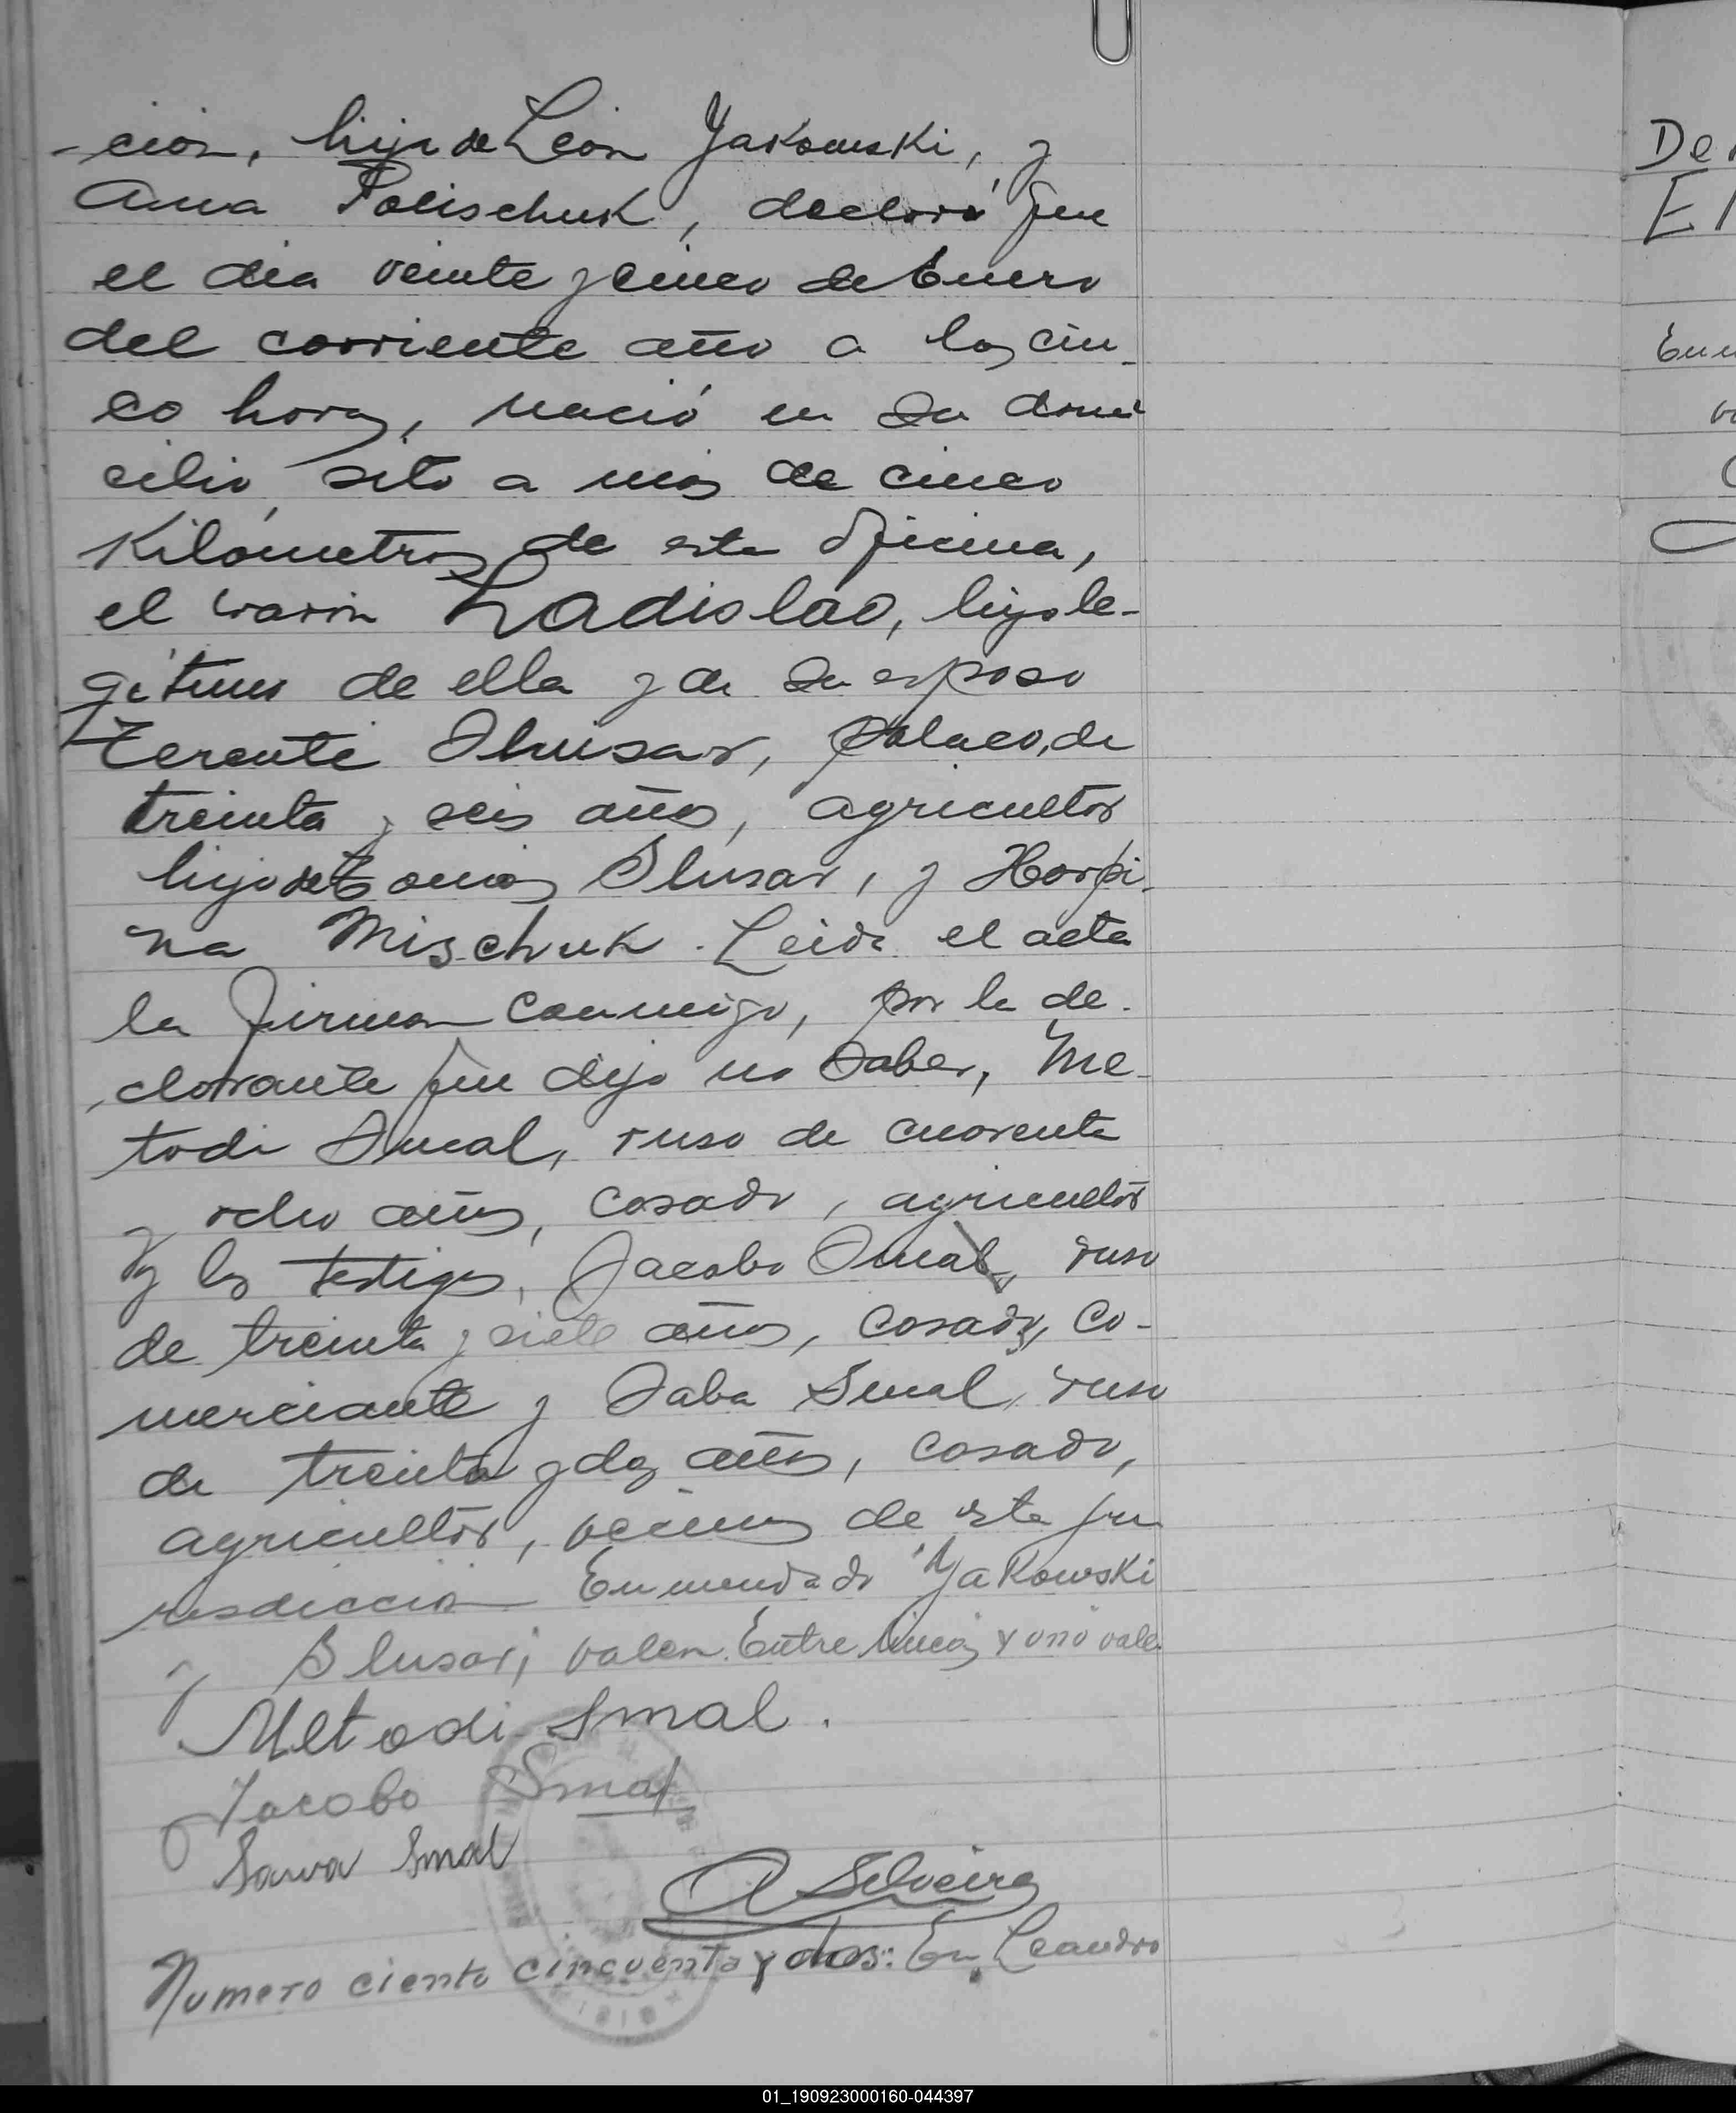 -ción, hija de León Yakowski, y
Ana Polischuk, declaró que
el dia veinte y cinco de Enero
del corriente año a las cin-
co horas, nació en su domi
cilio, sito a más de cinco
Kilómetros de esta Oficina,
el varón Ladislao, hijo le-
gítimo de ella y de su esposo
Terenti Slusar, polaco, de
treinta y seis años, agricultor
hijo de Tomás Slusar, y Horpi-
na Mischuk. Leida el acta
la firman conmigo, por la de-
clarante que dijo no saber, Me-
todi Smal, ruso de cuarenta
y ocho años, casado, agricultor
y los testigos, Jacobo Smal, ruso
de treinta y siete años, casado, co-
merciante y Saba Smal, ruso
de treinta y dos años, casado,
agricultor, vecinos de esta ju
risdicción Enmendado "Yakowski
y Slusar, valen. Entre lineas y uno vale
Metodi Smal.
Jacobo Smal
Sawa Smal
A Silveira
Numero ciento cincuenta y dos: En Leandro
De
E